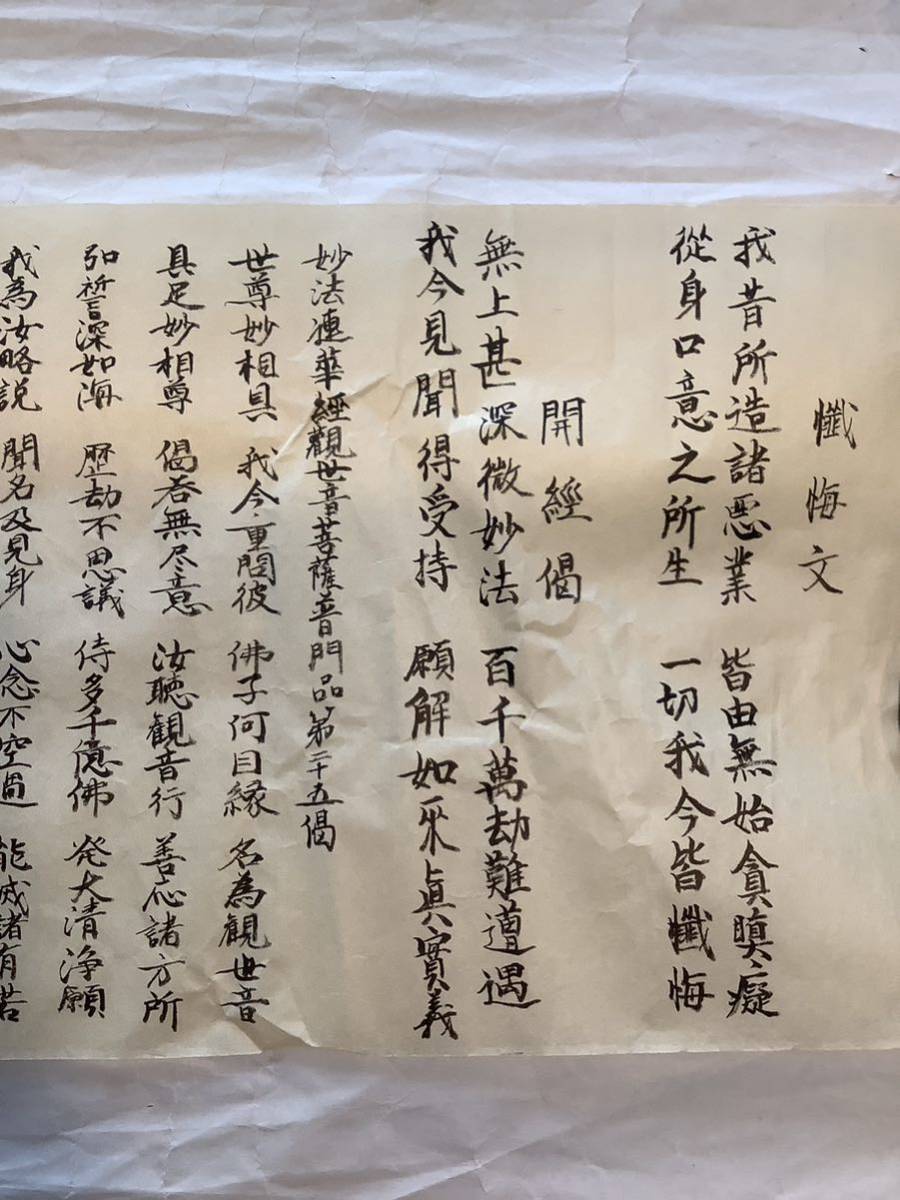 懺悔文
我昔所造諸悪業 皆由無始貪瞋癡
從身口意之所生 一切我今皆懺悔
開經偈
無上甚深微妙法 百千萬劫難遭遇
我今見聞得受持 願解如来眞實義
妙法蓮華經觀世音菩薩普門品第二十五偈
世尊妙相具 我今重問彼 佛子何因縁 名為観世音
具足妙相尊 偈答無尽意 汝聴観音行 善応諸方所
弘誓深如海 歴劫不思議 侍多千億佛 発大清浄願
我為汝略説 聞名及見身 心念不空過 能滅諸有苦